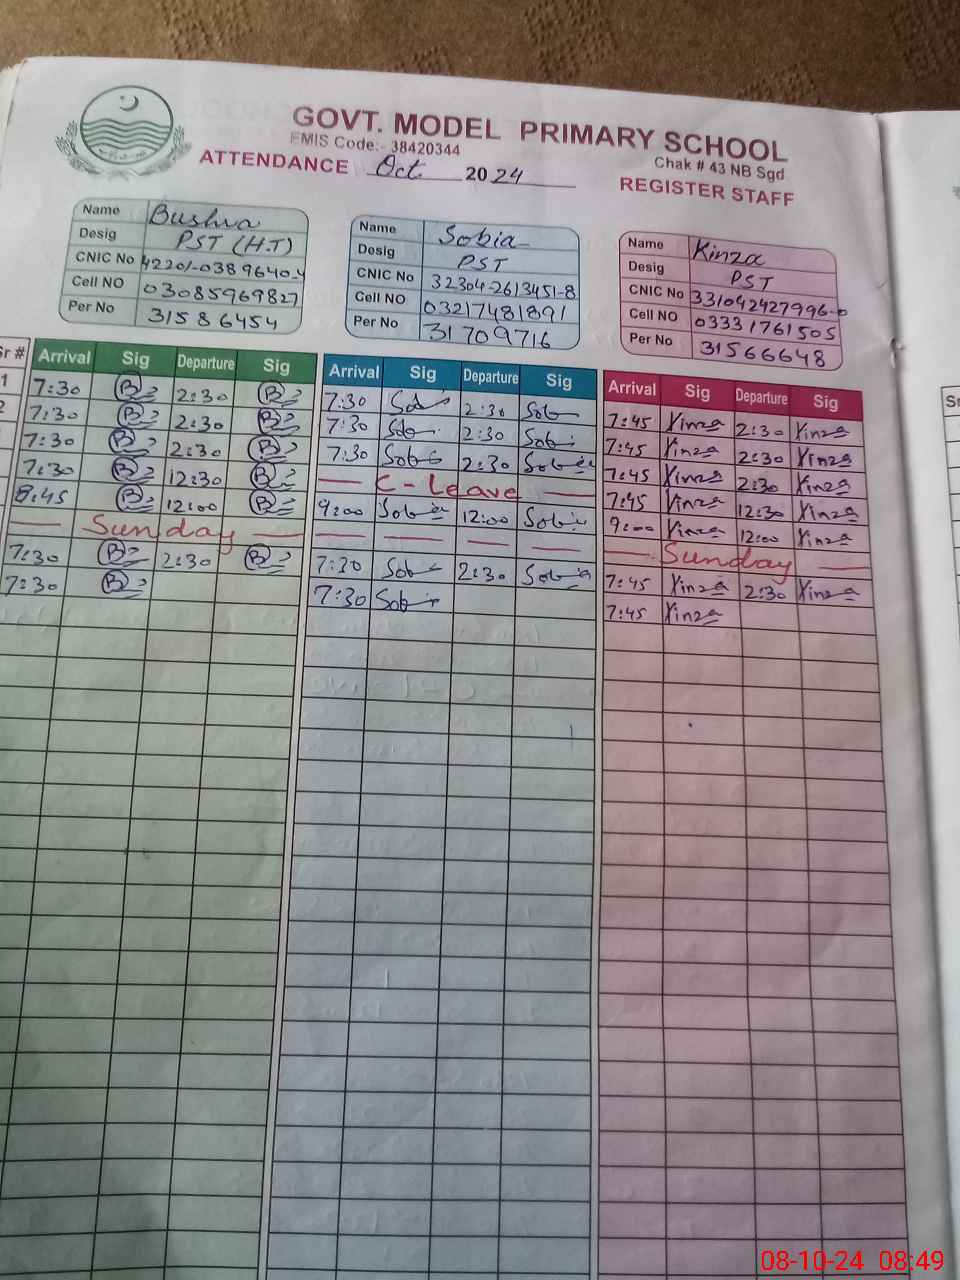 GOVT. MODEL PRIMARY SCHOOL
EMIS Code:- 38420344
Chak # 43 NB Sgd
ATTENDANCE Oct. 2024
REGISTER STAFF
Name Bushra
Desig PST (H.T)
CNIC No 42201-0389640-4
Cell NO 03085969827
Per No 31586454
Name Sobia
Desig PST
CNIC No 32304-2613451-8
Cell NO 03217481891
Per No 31709716
Name Kinza
Desig PST
CNIC No 331042427996-0
Cell NO 03331761505
Per No 31566648
Sr # Arrival Sig Departure Sig Arrival Sig Departure Sig Arrival Sig Departure Sig
1 7:30 B 2:30 B 7:30 Sob 2:30 Sob 7:45 Kinza 2:30 Kinza
2 7:30 B 2:30 B 7:30 Sob 2:30 Sob 7:45 Kinza 2:30 Kinza
7:30 B 2:30 B 7:30 Sob 2:30 Sobia 7:45 Kinza 2:30 Kinza
7:30 B 12:30 B C-Leave 7:45 Kinza 12:30 Kinza
8:45 B 12:00 B 9:00 Sobia 12:00 Sobia 9:00 Kinza 12:00 Kinza
Sunday Sunday
7:30 B 2:30 B 7:30 Sob 2:30 Sobia 7:45 Kinza 2:30 Kinza
7:30 B 7:30 Sob 7:45 Kinza
Sr
08-10-24 08:49